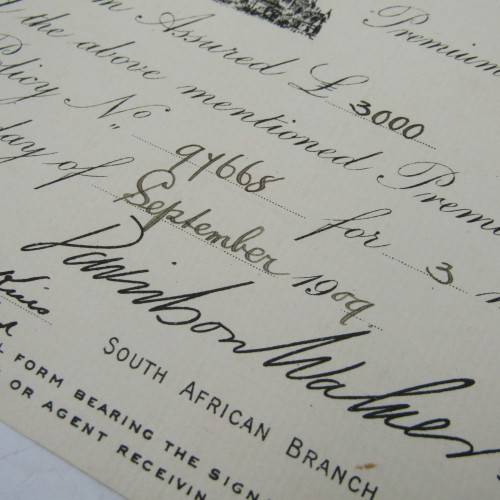 Premium
Assured £ 3000
the above mentioned Premi
Policy No. 97668 for 3
day of September 1909
Davinson Walmer
SOUTH AFRICAN BRANCH
FORM BEARING THE SIGN
OR AGENT RECEIVIN